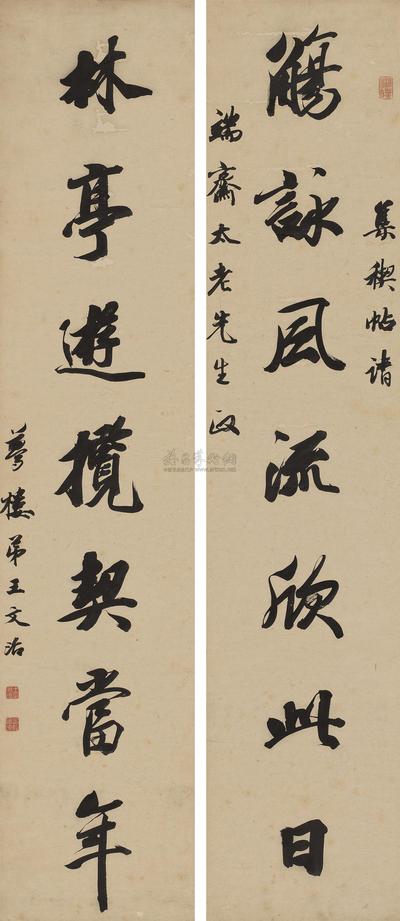 集稧帖請
觴詠風流欣此日
端齋太老先生政
林亭遊攬契當年
夢樓弟王文治